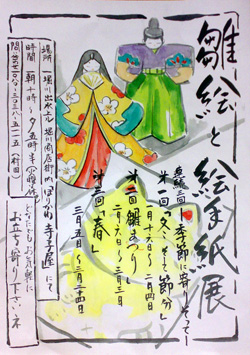 雛絵と絵手紙展
季節に寄りそって
第一回「冬、そして節分」
一月十六日〜二月四日
第二回「雛まつり」
二月六日〜三月三日
第三回「春」
三月五日〜三月二十四日
場所 堀川商店街 ほりかわ寺子屋 にて
時間 朝十時〜夕五時半
どなたでもお気軽に
お立ち寄り下さいネ